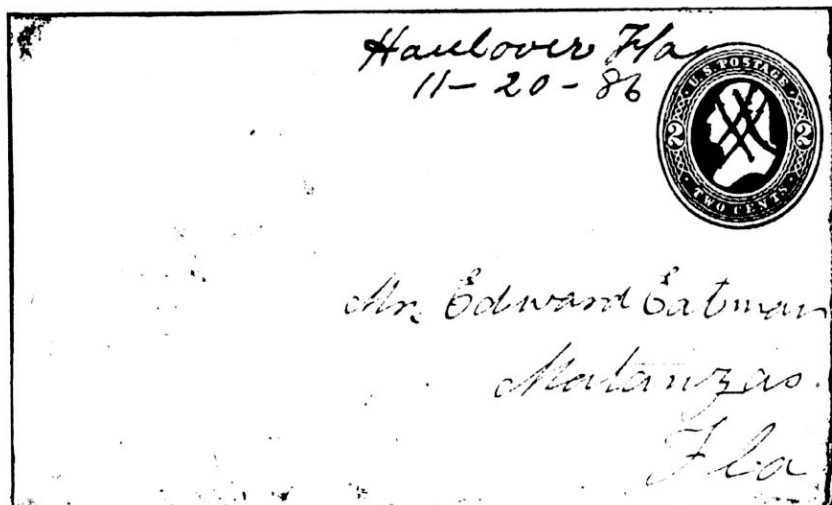 Haulover Fla
11-20-86
U.S. POSTAGE
2 2
TWO CENTS
Mr. Edward Eatman
Matanzas.
Fla